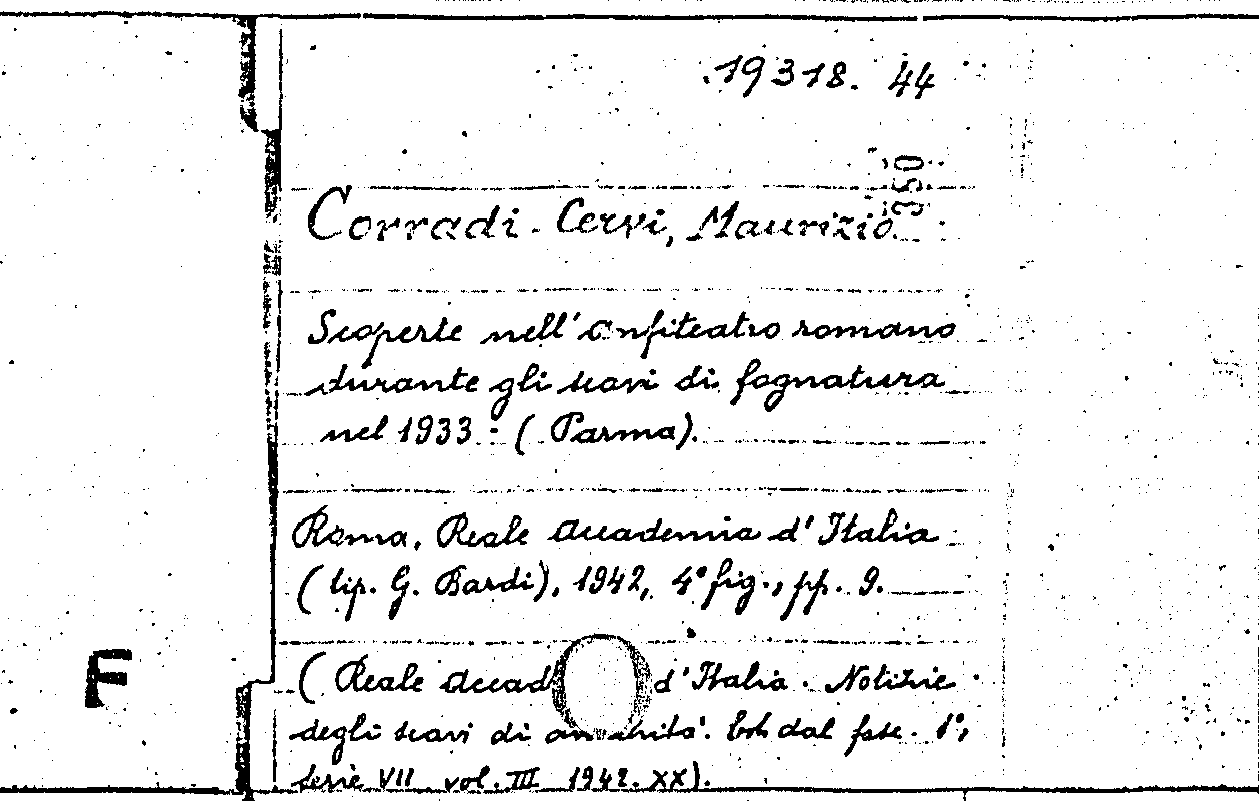 19318. 44
350
Corradi-Cervi, Maurizio
Scoperte nell'anfiteatro romano
durante gli scavi di fognatura
nel 1933 - (Parma).
Roma, Reale Accademia d'Italia
(tip. G. Bardi), 1942, 4° fig., pp. 9.
F
(Reale Accad d'Italia. Notizie
degli scavi di antichità. Estr. dal fasc. 1°,
serie VII vol. III 1942. XX).